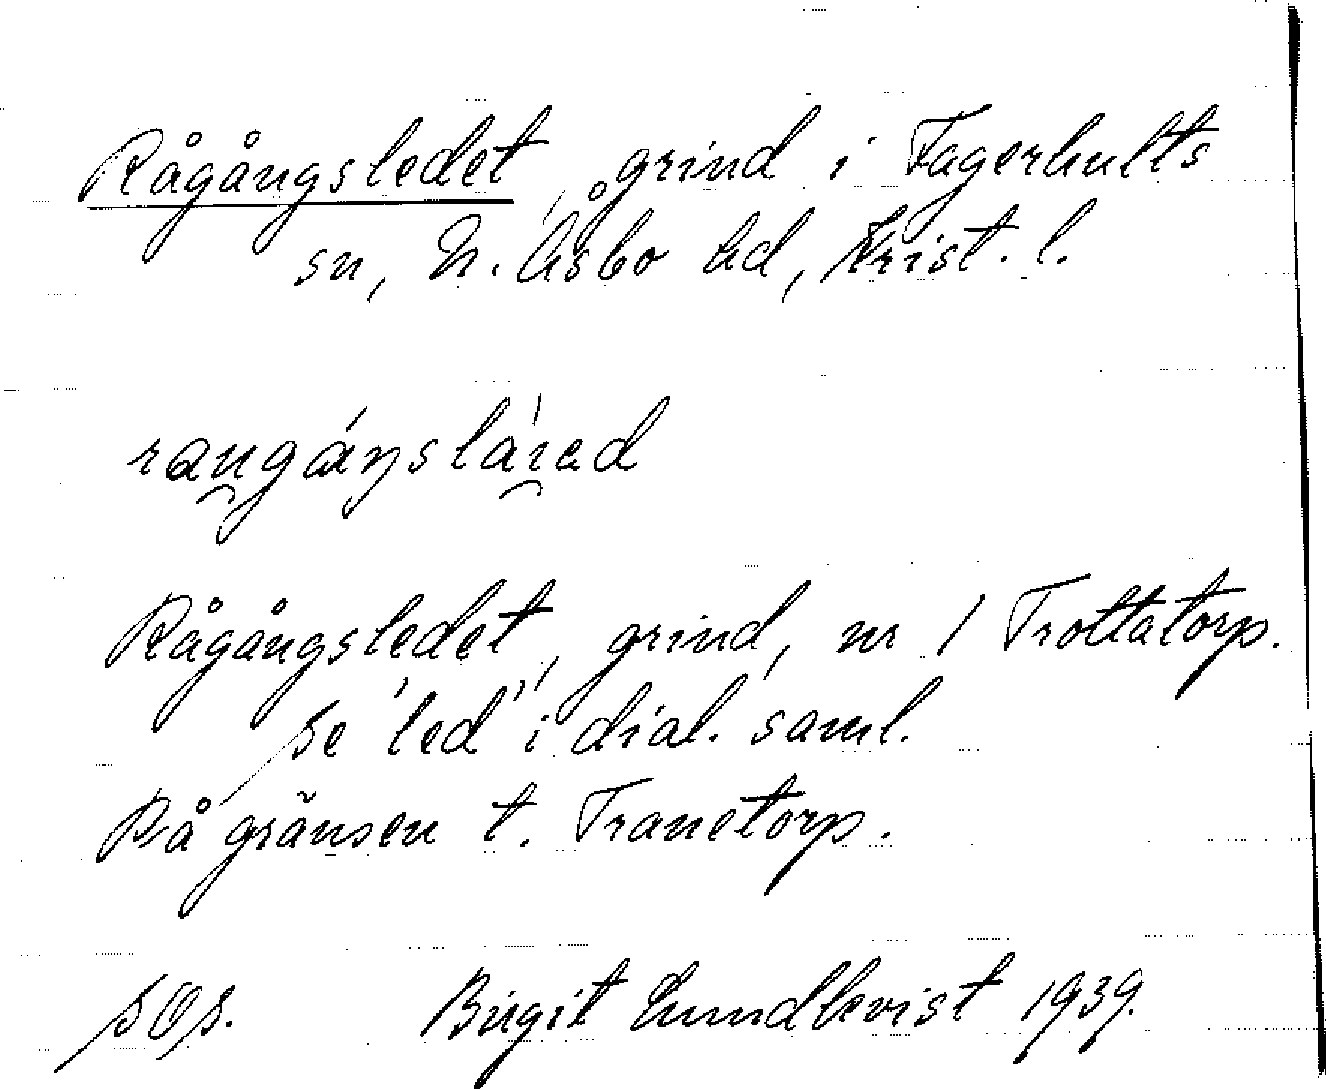 Rågångsledet, grind i Fagerhults
sn, N. Åsbo hd, Krist. l.
Rågångsledet, grind, nr 1 Trottatorp.
se "led" i dial. saml.
På gränsen t. Tranetorp.
sos. Birgit Lundkvist 1939.